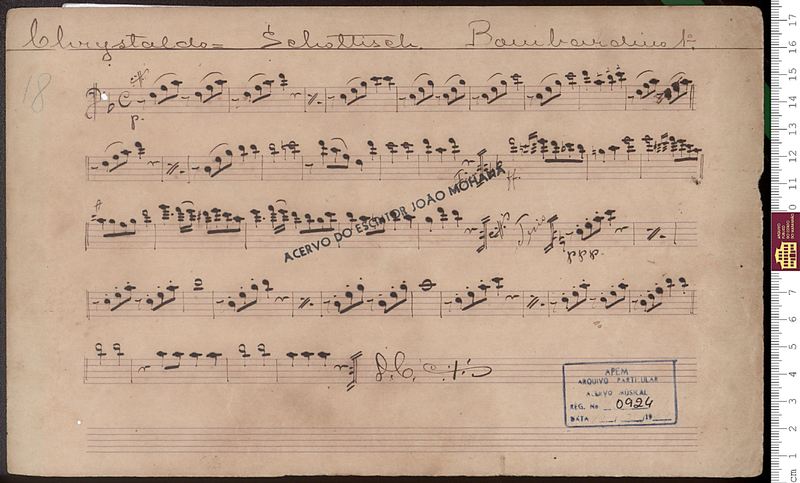 Chrystaldo= Schottisch Bombardino 1º
18
p.
ff
Trio
ppp.
ACERVO DO ESCRITOR JOÃO MOHANA
D.C.
APEM
ARQUIVO PARTICULAR
ACERVO MUSICAL
REG. No 0924
DATA / /19
17
16
15
14
13
12
11
10
7
6
5
4
3
2
1
cm